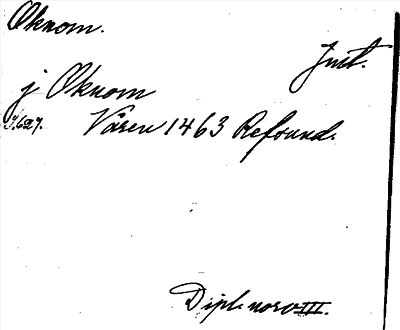 Oknom.
Jmt.
j Oknom
I.627. Våren 1463 Refsund.
Dipl. norv III.